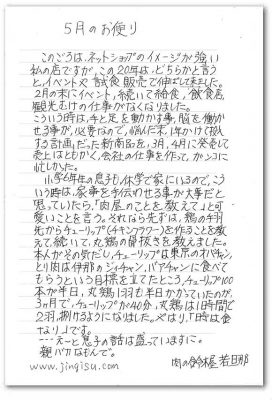 5月のお便り
このごろは、ネットショップのイメージが強い
私の店ですが、この20年は、どちらかと言う
と、イベントや試食販売で伸ばして来ました。
2月の末にイベント、続いて給食、飲食店、
観光むけの仕事がなくなりました。
こういう時は、手と足を動かす事、脳を働か
せる事が、必要なので、悩んだ末、1年かけて投入
する計画だった新商品を、3月、4月に発売して
売上はともかく、会社の仕事を作って、かンコに
忙しかった。
小学6年生の息子も休学で家にいるので、こうい
う時は、家事を手伝わせる事が大事だと
思っていたら、「肉屋のことを教えて」と可
愛いことを言う。それなら先ずは、鶏の手羽
先からチューリップ(チキンフラワー)を作ることを教
えて、続いて、丸鶏の骨抜きを教えました。
本人がその気だし、チューリップは東京のオバチャン、
とり肉は伊那のジイチャン、バアチャンに食べて
もらうという目標を立てたところ、チューリップ100
本が半日、丸鶏1羽も半日かかっていたのが、
3ヶ月で、チューリップが40分、丸鶏は1時間で
2羽、捌けるようになりました。やはり、「時は金
なり」です。
・・・えーと息子の話は盛っていますに。
親バカなもんで。
www.jingisu.com
肉の鈴木屋 若旦那